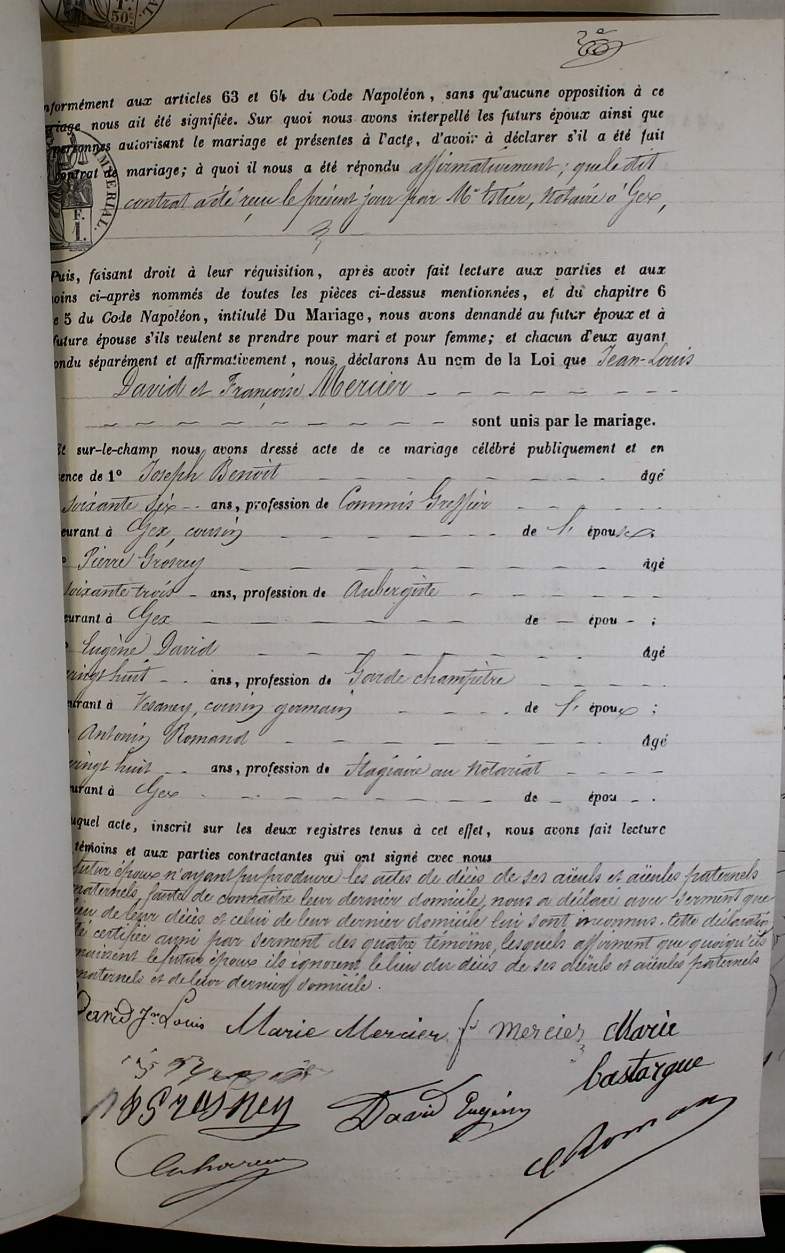 50c
nformément aux articles 63 et 64 du Code Napoléon, sans qu'aucune opposition à ce
riage nous ait été signifiée. Sur quoi nous avons interpellé les futurs époux ainsi que
personnes autorisant le mariage et présentes à l'acte, d'avoir à déclarer s'il a été fait
contrat de mariage; à quoi il nous a été répondu affirmativement; que le dit
contrat a été reçu le présent jour par Me Notaire à Gex,
IMPÉRIAL.
F.
1.
Puis, faisant droit à leur réquisition, après avoir fait lecture aux parties et aux
oins ci-après nommés de toutes les pièces ci-dessus mentionnées, et du chapitre 6
e 5 du Code Napoléon, intitulé Du Mariage, nous avons demandé au futur époux et à
future épouse s'ils veulent se prendre pour mari et pour femme; et chacun d'eux ayant
ondu séparément et affirmativement, nous déclarons Au nom de la Loi que Jean-Louis
David et Françoise Mercier
sont unis par le mariage.
Et sur-le-champ nous avons dressé acte de ce mariage célébré publiquement et en
ence de 1º Joseph Benoit âgé
soixante six ans, profession de Commis Greffier
eurant à Gex, cousin de l' épouse.
º Pierre Grosrey âgé
soixante trois ans, profession de Aubergiste
eurant à Gex de — épou - ;
º Eugène David âgé
vingt huit ans, profession de Garde champêtre
urant à Vesancy, cousin germain de l' époux ;
Antonin Romand âgé
vingt huit ans, profession de Stagiaire au Notariat
urant à Gex de — épou - .
uquel acte, inscrit sur les deux registres tenus à cet effet, nous avons fait lecture
témoins et aux parties contractantes qui ont signé avec nous
futur époux n'ayant pu produire les actes de décès de ses aïeuls et aïeules paternels
maternels, faute de connaître leur dernier domicile, nous a déclaré avec serment que
lieu de leur décès et celui de leur dernier domicile lui sont inconnus. Cette déclaratio
été certifiée aussi par serment des quatre témoins, lesquels affirment que quoiqu'ils
connaissent le futur époux ils ignorent le lieu du décès de ses aïeuls et aïeules paternels
maternels et de leur dernier domicile.
David Jn Louis Marie Mercier fs Mercier Marie
Castargue
David Eugène
Roman